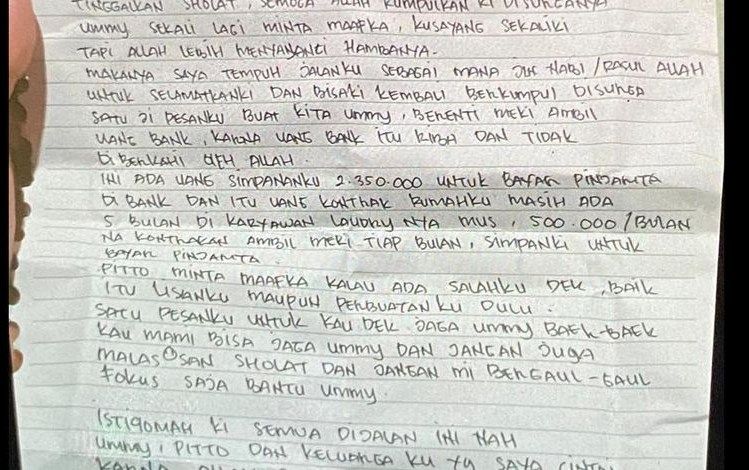 TINGGALKAN SHOLAT, SEMOGA ALLAH KUMPULKAN KI DI SURGANYA
UMMY SEKALI LAGI MINTA MAAFKA, KUSAYANG SEKALIKI
TAPI ALLAH LEBIH MENYAYANGI HAMBANYA.
MAKANYA SAYA TEMPUH JALANKU SEBAGAI MANA NABI / RASUL ALLAH
UNTUK SELAMATKANKI DAN BISAKI KEMBALI BERKUMPUL DISURGA
SATU JI PESANKU BUAT KITA UMMY, BERENTI MEKI AMBIL
UANG BANK, KARNA UANG BANK ITU RIBA DAN TIDAK
DI BERKAHI OLEH ALLAH.
INI ADA UANG SIMPANANKU 2.350.000 UNTUK BAYAR PINJAMTA
DI BANK DAN ITU UANG KONTRAK RUMAHKU MASIH ADA
5 BULAN DI KARYAWAN LAUDRY NYA MUS, 500.000 / BULAN
NA KONTRAKAN AMBIL MEKI TIAP BULAN, SIMPANKI UNTUK
BAYAR PINJAMTA.
PITTO MINTA MAAFKA KALAU ADA SALAHKU DEK, BAIK
ITU LISANKU MAUPUN PERBUATAN KU DULU.
SATU PESANKU UNTUK KAU DEK JAGA UMMY BAEK-BAEK
KAU MAMI BISA JAGA UMMY DAN JANGAN JUGA
MALAS SAN SHOLAT DAN JANGAN MI BERGAUL-GAUL
FOKUS SAJA BANTU UMMY.
ISTIQOMAH KI SEMUA DIJALAN INI NAH
UMMY, PITTO DAN KELUARGA KU YG SAYA CINTAI
KARNA